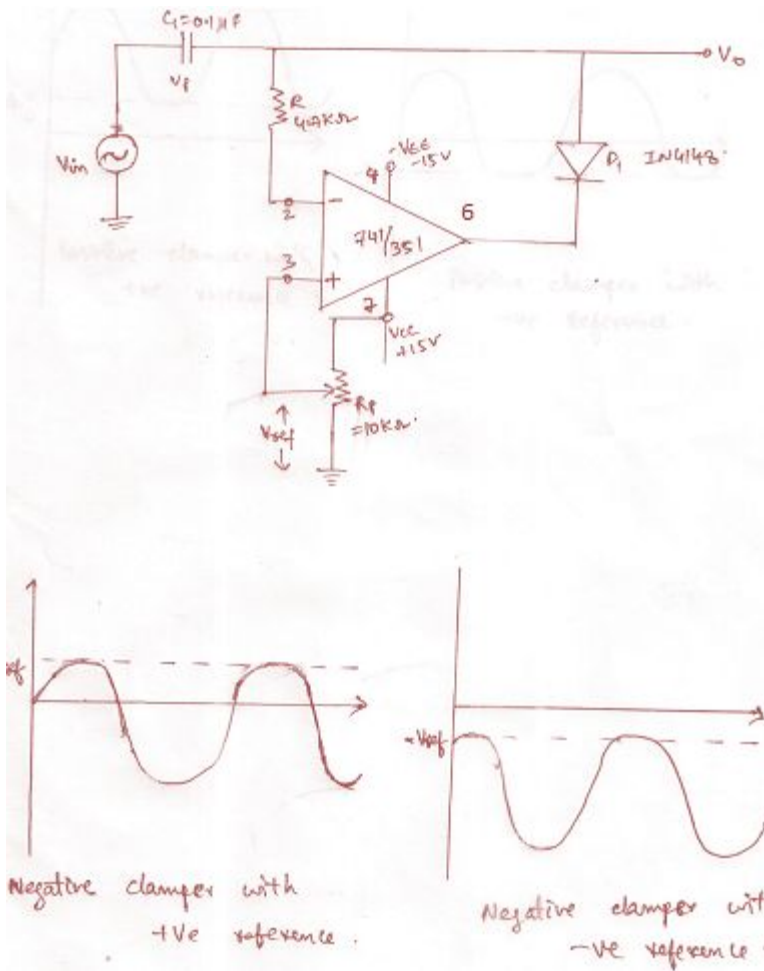 C₁=0.1μF
Vo
R
Vin
-VEE
-15V
4
D₁ IN4148.
2
-
6
741/351
3
+
7
VCC
+15V
Vref
RP
=10KΩ.
-Vref
Negative clamper with
+Ve reference.
Negative clamper wit
-ve reference